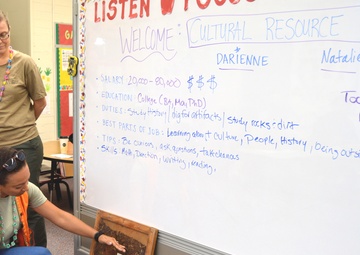 LISTEN
WELCOME: CULTURAL RESOURCE
DARIENNE
Natalie
- SALARY: 20,000 - 80,000 $ $ $
- EDUCATION: College (BA, MA, PhD)
- DUTIES: Study History / dig for artifacts / study rocks + dirt
- BEST PARTS OF JOB: Learning about culture, People, History, being outside
- TIPS: Be curious, ask questions, take chances
- Skills: Math, Devotion, Writing, reading.